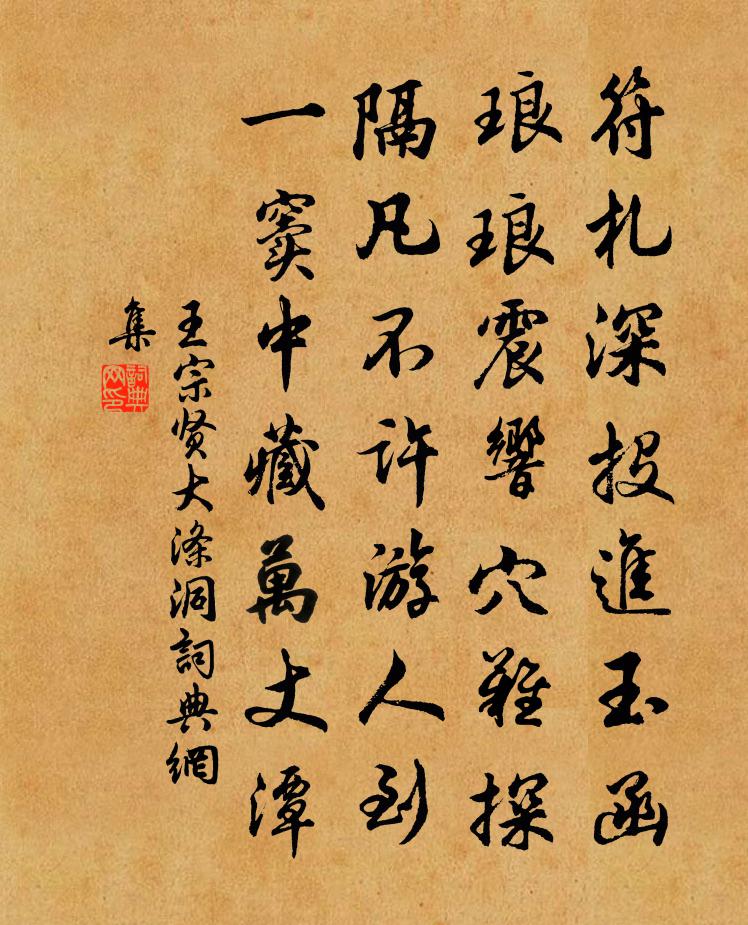 符札深投進玉函
琅琅震響穴難探
隔凡不許游人到
一竇中藏萬丈潭
王宗贤大涤洞詞典網
集
詞典
网印